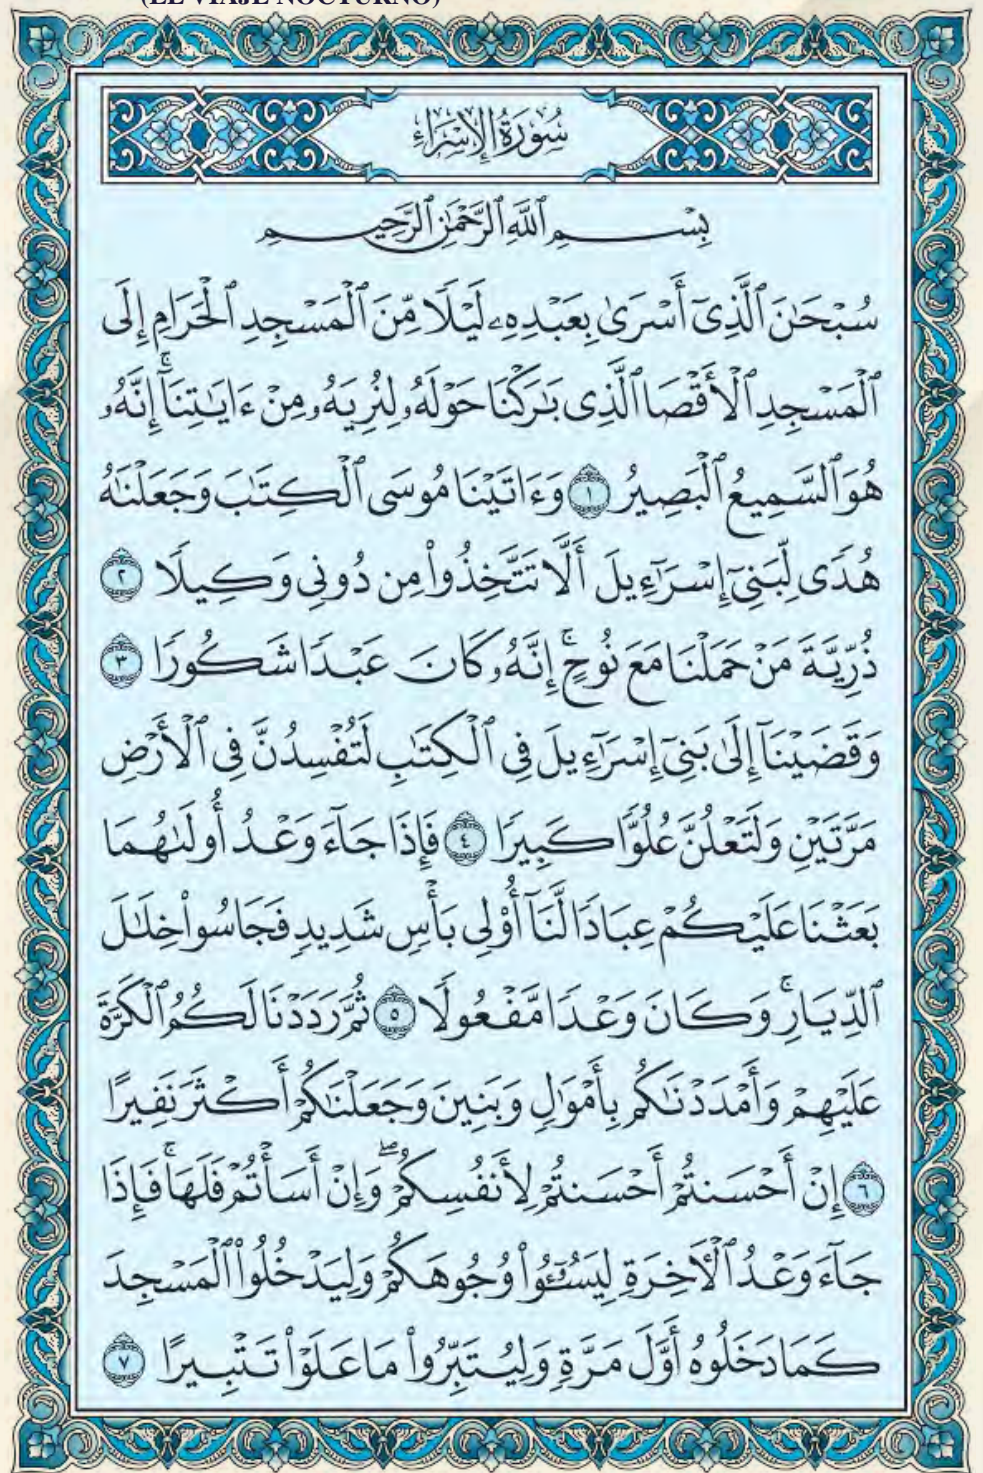 (EL VIAJE NOCTURNO)
سُورَةُ الإِسْرَاءِ
بِسْمِ ٱللَّهِ ٱلرَّحْمَٰنِ ٱلرَّحِيمِ
سُبْحَٰنَ ٱلَّذِىٓ أَسْرَىٰ بِعَبْدِهِۦ لَيْلًا مِّنَ ٱلْمَسْجِدِ ٱلْحَرَامِ إِلَى
ٱلْمَسْجِدِ ٱلْأَقْصَا ٱلَّذِى بَٰرَكْنَا حَوْلَهُۥ لِنُرِيَهُۥ مِنْ ءَايَٰتِنَآ ۚ إِنَّهُۥ
هُوَ ٱلسَّمِيعُ ٱلْبَصِيرُ ١ وَءَاتَيْنَا مُوسَى ٱلْكِتَٰبَ وَجَعَلْنَٰهُ
هُدًى لِّبَنِىٓ إِسْرَٰٓءِيلَ أَلَّا تَتَّخِذُوا۟ مِن دُونِى وَكِيلًا ٢
ذُرِّيَّةَ مَنْ حَمَلْنَا مَعَ نُوحٍ ۚ إِنَّهُۥ كَانَ عَبْدًا شَكُورًا ٣
وَقَضَيْنَآ إِلَىٰ بَنِىٓ إِسْرَٰٓءِيلَ فِى ٱلْكِتَٰبِ لَتُفْسِدُنَّ فِى ٱلْأَرْضِ
مَرَّتَيْنِ وَلَتَعْلُنَّ عُلُوًّا كَبِيرًا ٤ فَإِذَا جَآءَ وَعْدُ أُولَىٰهُمَا
بَعَثْنَا عَلَيْكُمْ عِبَادًا لَّنَآ أُو۟لِى بَأْسٍ شَدِيدٍ فَجَاسُوا۟ خِلَٰلَ
ٱلدِّيَارِ ۚ وَكَانَ وَعْدًا مَّفْعُولًا ٥ ثُمَّ رَدَدْنَا لَكُمُ ٱلْكَرَّةَ
عَلَيْهِمْ وَأَمْدَدْنَٰكُم بِأَمْوَٰلٍ وَبَنِينَ وَجَعَلْنَٰكُمْ أَكْثَرَ نَفِيرًا
٦ إِنْ أَحْسَنتُمْ أَحْسَنتُمْ لِأَنفُسِكُمْ ۖ وَإِنْ أَسَأْتُمْ فَلَهَا ۚ فَإِذَا
جَآءَ وَعْدُ ٱلْـَٔاخِرَةِ لِيَسُـۥٓـُٔوا۟ وُجُوهَكُمْ وَلِيَدْخُلُوا۟ ٱلْمَسْجِدَ
كَمَا دَخَلُوهُ أَوَّلَ مَرَّةٍ وَلِيُتَبِّرُوا۟ مَا عَلَوْا۟ تَتْبِيرًا ٧